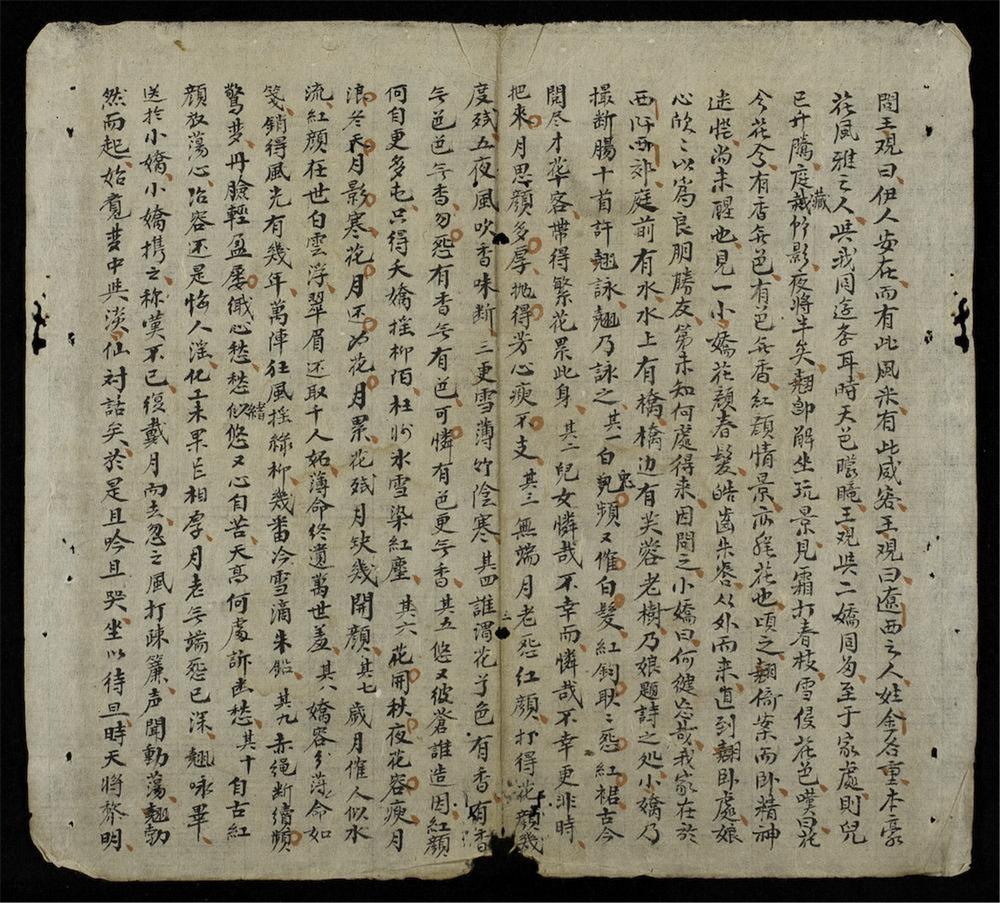 問王覌曰伊人安在而有此風采有此威容王覌曰遼西之人姓金名重本豪
花風雅之人與我同遊李耳時天色矇曨王覌與二嬌同勻至于家處則兒
已升騰庭藏竹影夜將半矣翹卽觧坐玩景見霜打春枝雪侵花色嘆曰花
今花今有香無色有色無香紅顔情景亦猶花也頃之翹倚案而卧精神
迷惚尚未醒也見一小嬌花顔春髮皓齒朱唇从外而来直到翹卧處娘
心欣〻以爲良朋勝友第未知何處得来因問之小嬌曰何健忘哉我家在於
西阡西郊庭前有水水上有橋橋边有芙蓉老樹乃娘題詩之処小嬌乃
撮断腸十首許翹詠翹乃詠之其一白皃頻又催白髮紅鈎耿〻怨紅裙古今
閲尽才華客帶得繁花累此身其二兒女憐哉不幸而憐哉不幸更非時
把来月思顔多厚抛得芳心瘦不支其三無端月老怨紅顔打得花顔幾
度残五夜風吹香味断三更雪薄竹陰寒其四誰渭花芳色有香有香
無色色無香勿怨有香無有色可憐有色更無香其五悠又彼蒼誰造因紅顔
何自更多屯只得夭嬌摇柳陌枉將氷雪染紅塵其六花開秋夜花容瘦月
浪冬天月影寒花月还爲花月累花残月缺幾開顔其七歲月催人似水
流紅顔在世白雲浮翠眉还取千人妬薄命終遺萬世羞其八嬌容分薄命如
箋銷得風光有幾年萬陣狂風摇綠柳幾番冷雪滴朱鉛其九赤绳断續頻
驚夢丹臉輕盈屡儆心愁愁緒悠又心自苦天高何處訴幽愁其十自古紅
顔放蕩心冶容还是悔人滛化工未畢臣相厚月老無端怨已深翹咏畢
送於小嬌小嬌携之称嘆不已復戴月而去忽之風打疎簾声聞動蕩翹動
然而起始覔夢中與淡仙対話矣於是且吟且哭坐以待旦時天將黎明
三